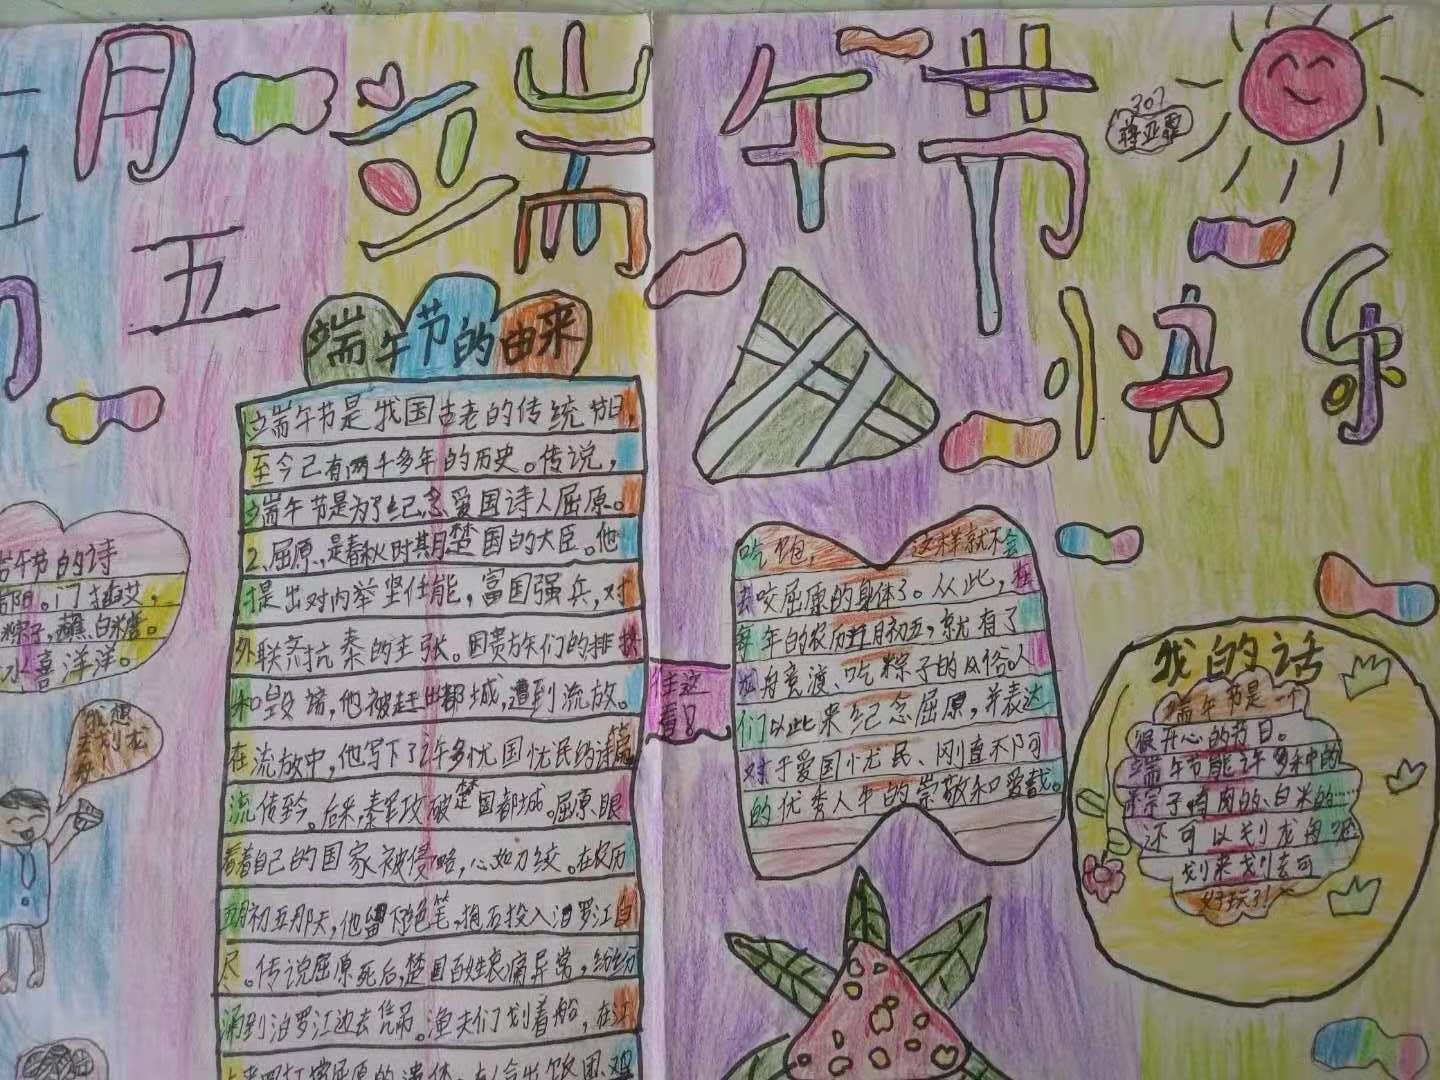 五月
五
端午节
快乐
307
端午节的由来
端午节是我国古老的传统节日,
至今已有两千多年的历史。传说,
端午节是为了纪念爱国诗人屈原。
2、屈原,是春秋时期楚国的大臣。他
提出对内举坚任能,富国强兵,对
外联齐抗秦的主张。因贵族们的排挤
和毁谤,他被赶出都城,遭到流放。
在流放中,他写下了2年多忧国忧民的诗篇
流传至今。后来,秦军攻破楚国都城。屈原眼
着自己的国家被侵略,心如刀绞。在农历
五月初五那天,他留下绝笔,抱石投入汨罗江自
尽。传说屈原死后,楚国百姓哀痛异常,纷纷
涌到汨罗江边去凭吊。渔夫们划着船,在江
往这
看!
吃饱, 这样就不会
去咬屈原的身体了。从此,在
每年的农历五月初五,就有了
龙舟竞渡、吃粽子的风俗。人
们以此来纪念屈原,并表达
对于爱国忧民、刚直不阿
的优秀人士的崇敬和爱戴。
我的话
端午节是一个
很开心的节日。
端午节能许多种的
粽子鸡肉的、白米的……
还可以划龙舟呢
划来划去可
好玩了!
午节的诗
门插艾,
粽子,蘸白糖。
喜洋洋。
我想
去划龙